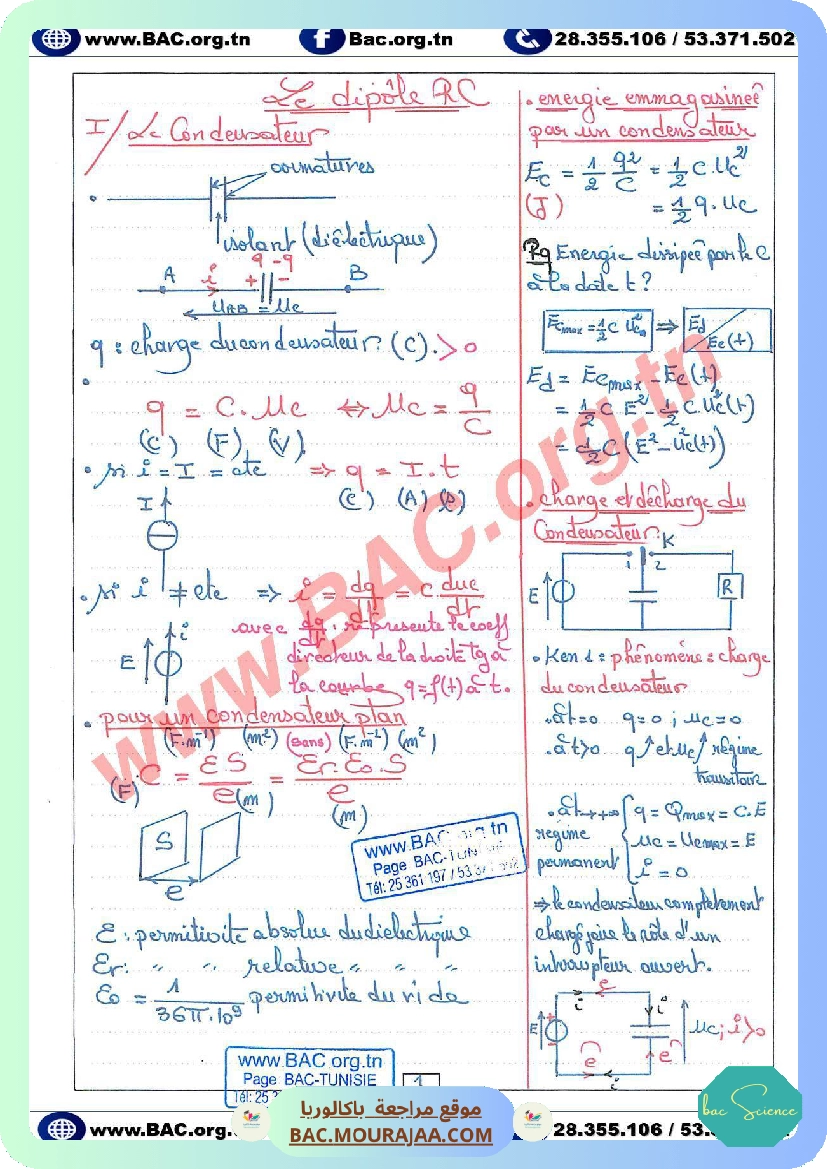 www.BAC.org.tn
Bac.org.tn
28.355.106 / 53.371.502
Le dipôle RC
I/ Le Condensateur
armatures
isolant (diélectrique)
A i q -q B
+ -
UAB = Uc
q : charge du condensateur (C). > 0
q = C.Uc ⇔ Uc = q/C
(C) (F) (V)
• si i = I = cte ⇒ q = I.t
(C) (A) (s)
I
• si i ≠ cte ⇒ i = dq/dt = c.duc/dt
avec dq/dt : représente le coeff
directeur de la droite tg à
la courbe q=f(t) à t.
E i
• pour un condensateur plan
(F.m⁻¹) (m²) (sans) (F.m⁻¹) (m²)
(F) C = εS/e = εr.ε0.S/e
(m) (m)
S
e
ε : permitivité absolue du dielectrique
εr : " " relative " " "
ε0 = 1/36π.10⁹ permitivité du vide
• energie emmagasineé
par un condensateur
Ec = 1/2 q²/C = 1/2 C.Uc²
(J) = 1/2 q.Uc
Rq Energie dissipeé par le C
à la date t ?
Ed = Ecmax - Ec(t)
= 1/2 C E² - 1/2 C Uc²(t)
= 1/2 C (E² - Uc²(t))
• charge et décharge du
Condensateur.
K
1 2
E R
• K en 1 : phénomène : charge
du condensateur
• à t=0 q=0 ; uc=0
• à t>0 q↗ et uc↗ régime
transitoire
• à t→+∞ q = Qmax = C.E
régime uc = Ucmax = E
permanent i = 0
⇒ le condensateur complètement
chargé joue le rôle d'un
interrupteur ouvert.
E i e Uc ; i>0
www.BAC.org.tn
www.BAC.org.tn
Page BAC-TUNISIE
Tél: 25 361 197 / 53 371 502
www.BAC.org.tn
Page BAC-TUNISIE
Tél: 25
1
موقع مراجعة باكالوريا
BAC.MOURAJAA.COM
bac Science
www.BAC.org.
28.355.106 / 53.